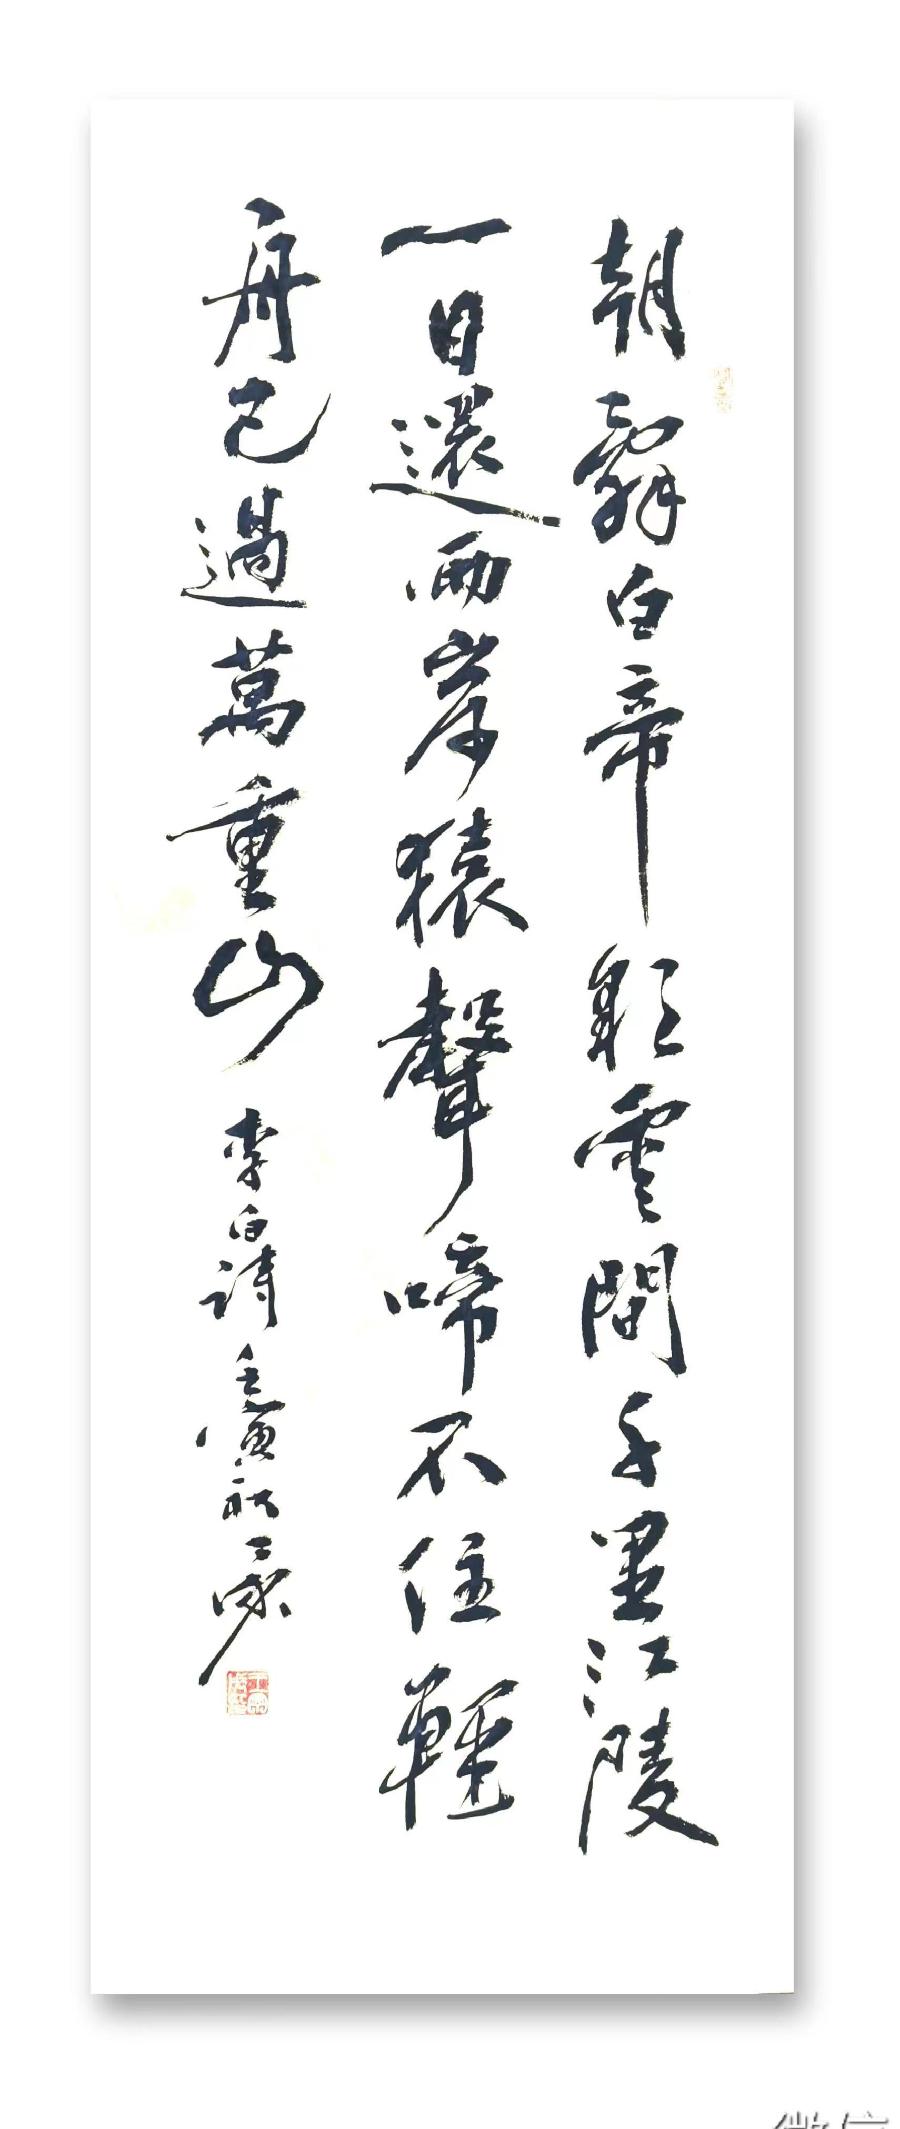 朝辭白帝彩雲間千里江陵
一日還兩岸猿聲啼不住輕
舟已過萬重山 李白詩 壬寅初夏
微信